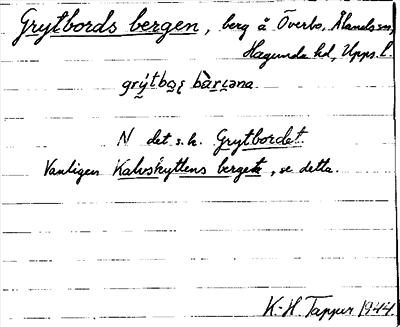 Grytbords bergen, berg å Överbo, Ålands sn,
Hagunda hd, Upps. l.
N det s.k. Grytbordet.
Vanligen Kalvskyttens berget, se detta.
K-H. Tapper 1944.